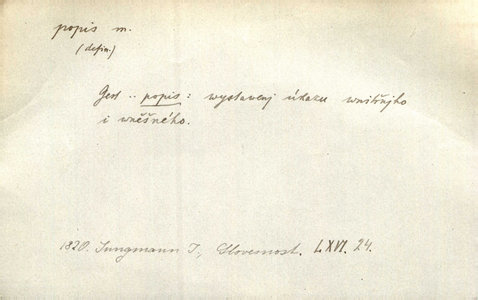 popis m.
(defin.)
Gest .. popis: wystawenj úkazu wnitřnjho
i wněšného.
1820. Jungmann J., Slovesnost. LXVI. 24.